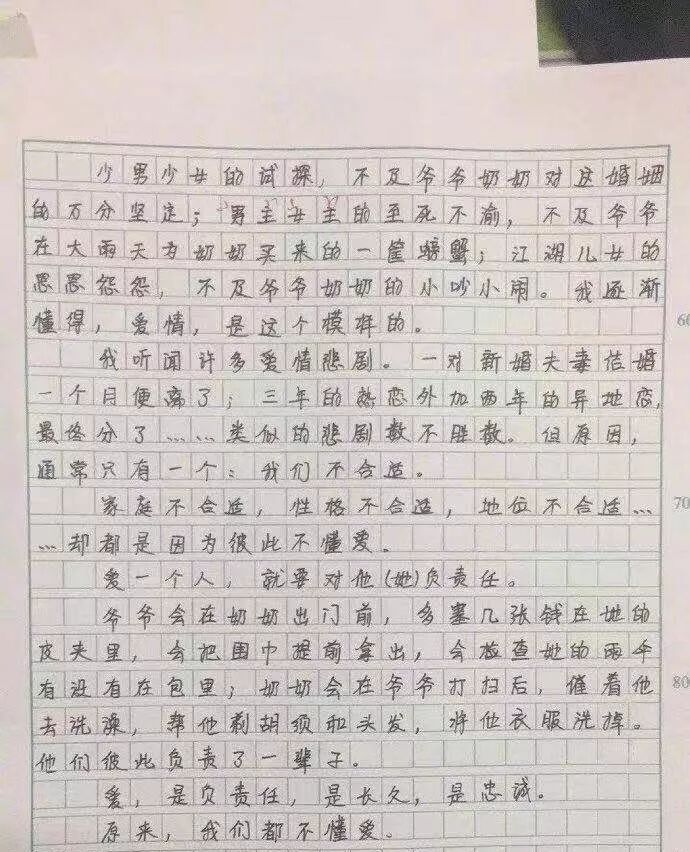 少男少女的试探，不及爷爷奶奶对这婚姻
的万分坚定；男主女主的至死不渝，不及爷爷
在大雨天为奶奶买来的一筐螃蟹；江湖儿女的
恩恩怨怨，不及爷爷奶奶的小吵小闹。我逐渐
懂得，爱情，是这个模样的。
60
我听闻许多爱情悲剧。一对新婚夫妻结婚
一个月便离了；三年的热恋外加两年的异地恋，
最终分了……类似的悲剧数不胜数。但原因，
通常只有一个：我们不合适。
家庭不合适，性格不合适，地位不合适…
70
…却都是因为彼此不懂爱。
爱一个人，就要对他(她)负责任。
爷爷会在奶奶出门前，多塞几张钱在她的
皮夹里，会把围巾提前拿出，会检查她的雨伞
有没有在包里；奶奶会在爷爷打扫后，催着他
800
去洗澡，帮他剃胡须和头发，将他衣服洗掉。
他们彼此负责了一辈子。
爱，是负责任，是长久，是忠诚。
原来，我们都不懂爱。